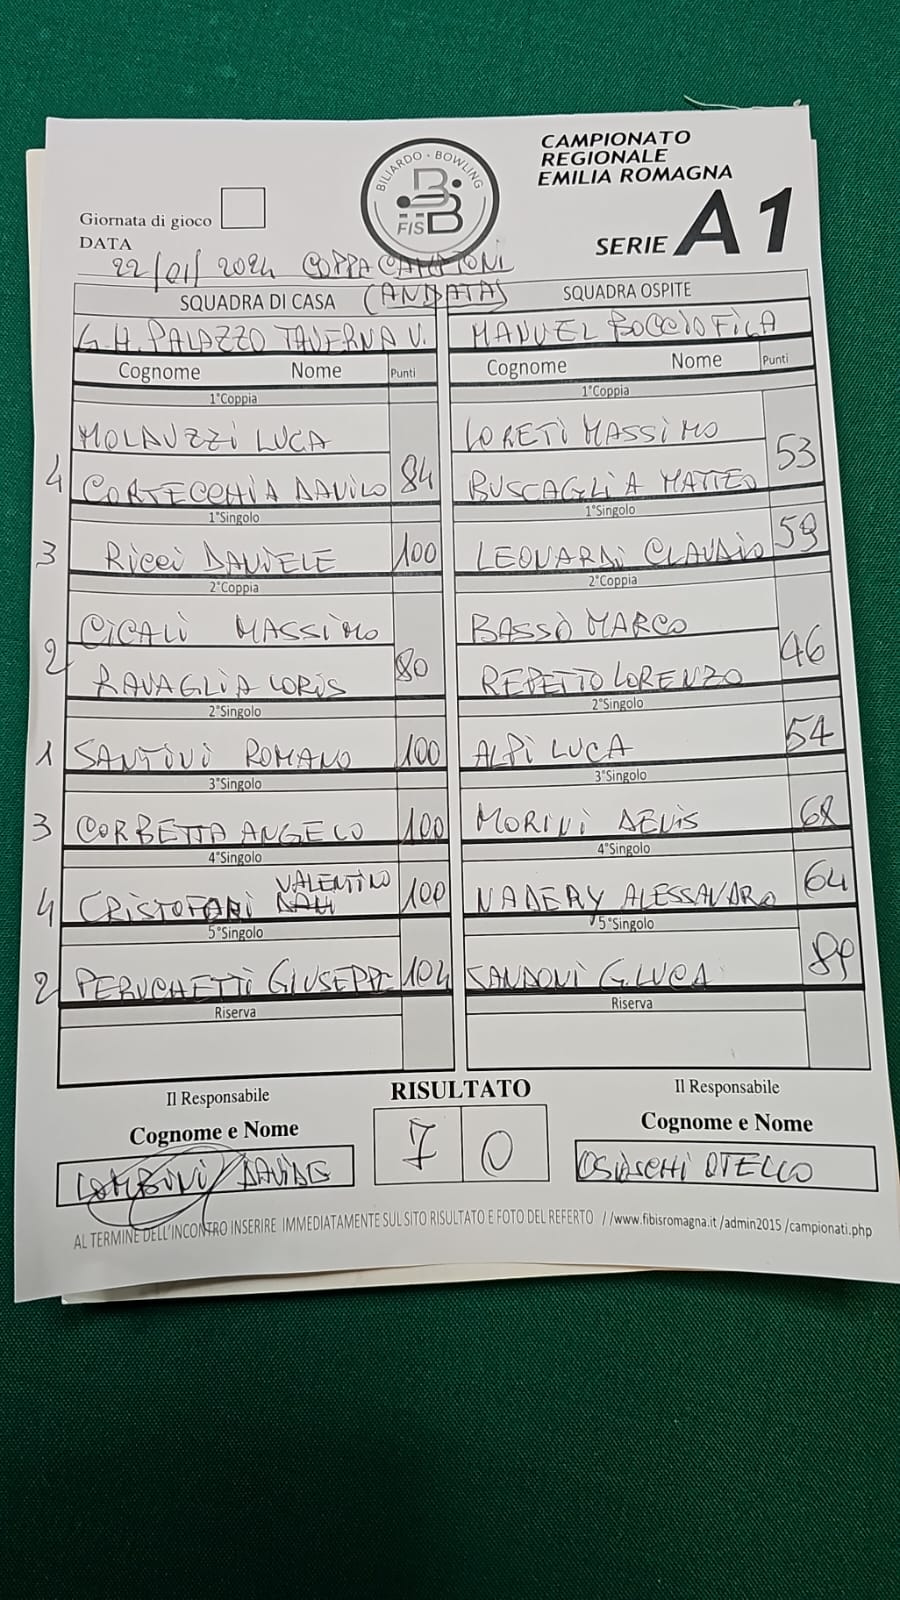 CAMPIONATO
REGIONALE
EMILIA ROMAGNA
SERIE A1
BILIARDO · BOWLING
FISBB
Giornata di gioco
DATA
22/01/2024 COPPA CAMPIONI
(ANDATA)
SQUADRA DI CASA SQUADRA OSPITE
G.H. PALAZZO TAVERNA V. MANUEL BOCCIOFILA
Cognome Nome Punti Cognome Nome Punti
1°Coppia 1°Coppia
MOLDUZZI LUCA LORETI MASSIMO
4 CORTECCHIA DAVILO 84 BUSCAGLIA MATTEO 53
1°Singolo 1°Singolo
3 Ricci DANIELE 100 LEONARDI CLAUDIO 59
2°Coppia 2°Coppia
CICALI MASSIMO BASSO MARCO
2 RAVAGLIA LORIS 80 REPETTO LORENZO 46
2°Singolo 2°Singolo
1 SANTINI ROMANO 100 ALPI LUCA 54
3°Singolo 3°Singolo
3 CORBETTA ANGELO 100 MORINI DENIS 68
4°Singolo 4°Singolo
VALENTINO
4 CRISTOFARI 100 NADERY ALESSANDRO 64
5°Singolo 5°Singolo
2 PERUCHETTI GIUSEPPE 104 SANDONI G.LUCA 89
Riserva Riserva
Il Responsabile RISULTATO Il Responsabile
Cognome e Nome 7 0 Cognome e Nome
LOMBINI DAVIDE OTELLO
AL TERMINE DELL'INCONTRO INSERIRE IMMEDIATAMENTE SUL SITO RISULTATO E FOTO DEL REFERTO //www.fibisromagna.it/admin2015/campionati.php